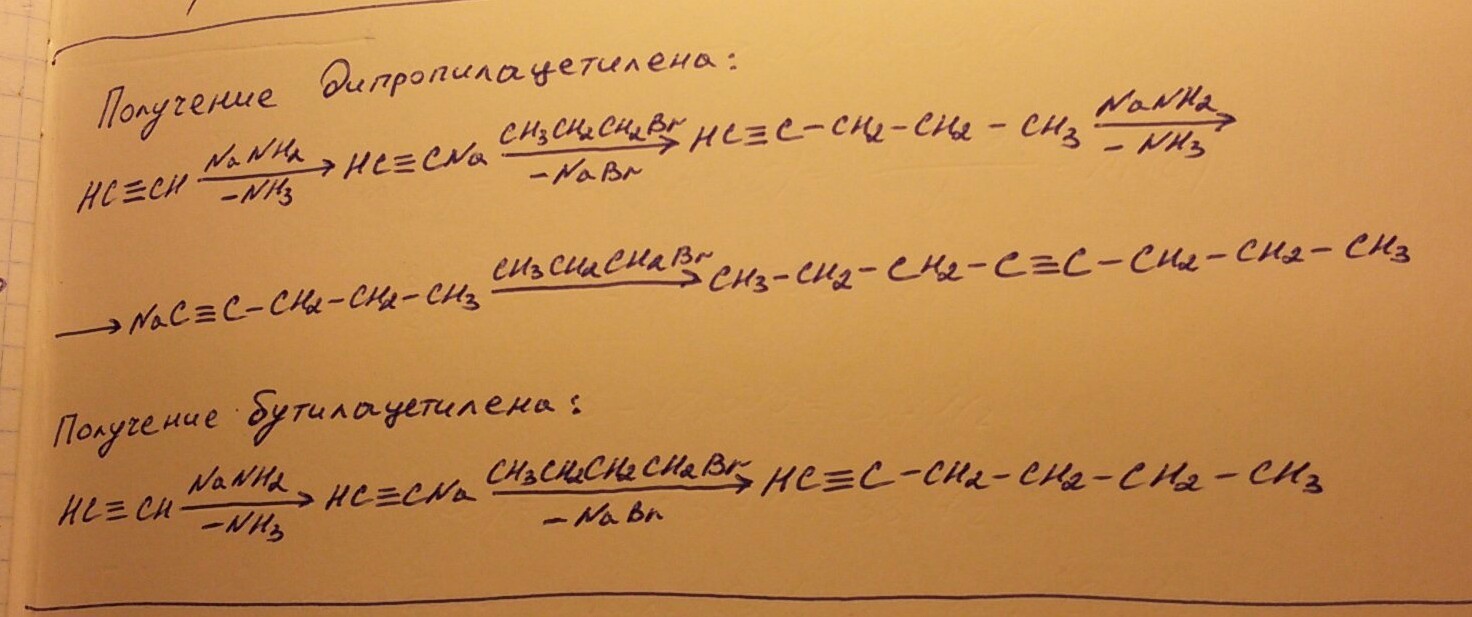 Получение дипропилацетилена:
HC≡CH NaNH2 -NH3 → HC≡CNa CH3CH2CH2Br -NaBr → HC≡C-CH2-CH2-CH3 NaNH2 -NH3 →
→ NaC≡C-CH2-CH2-CH3 CH3CH2CH2Br → CH3-CH2-CH2-C≡C-CH2-CH2-CH3
Получение бутилацетилена:
HC≡CH NaNH2 -NH3 → HC≡CNa CH3CH2CH2CH2Br -NaBr → HC≡C-CH2-CH2-CH2-CH3